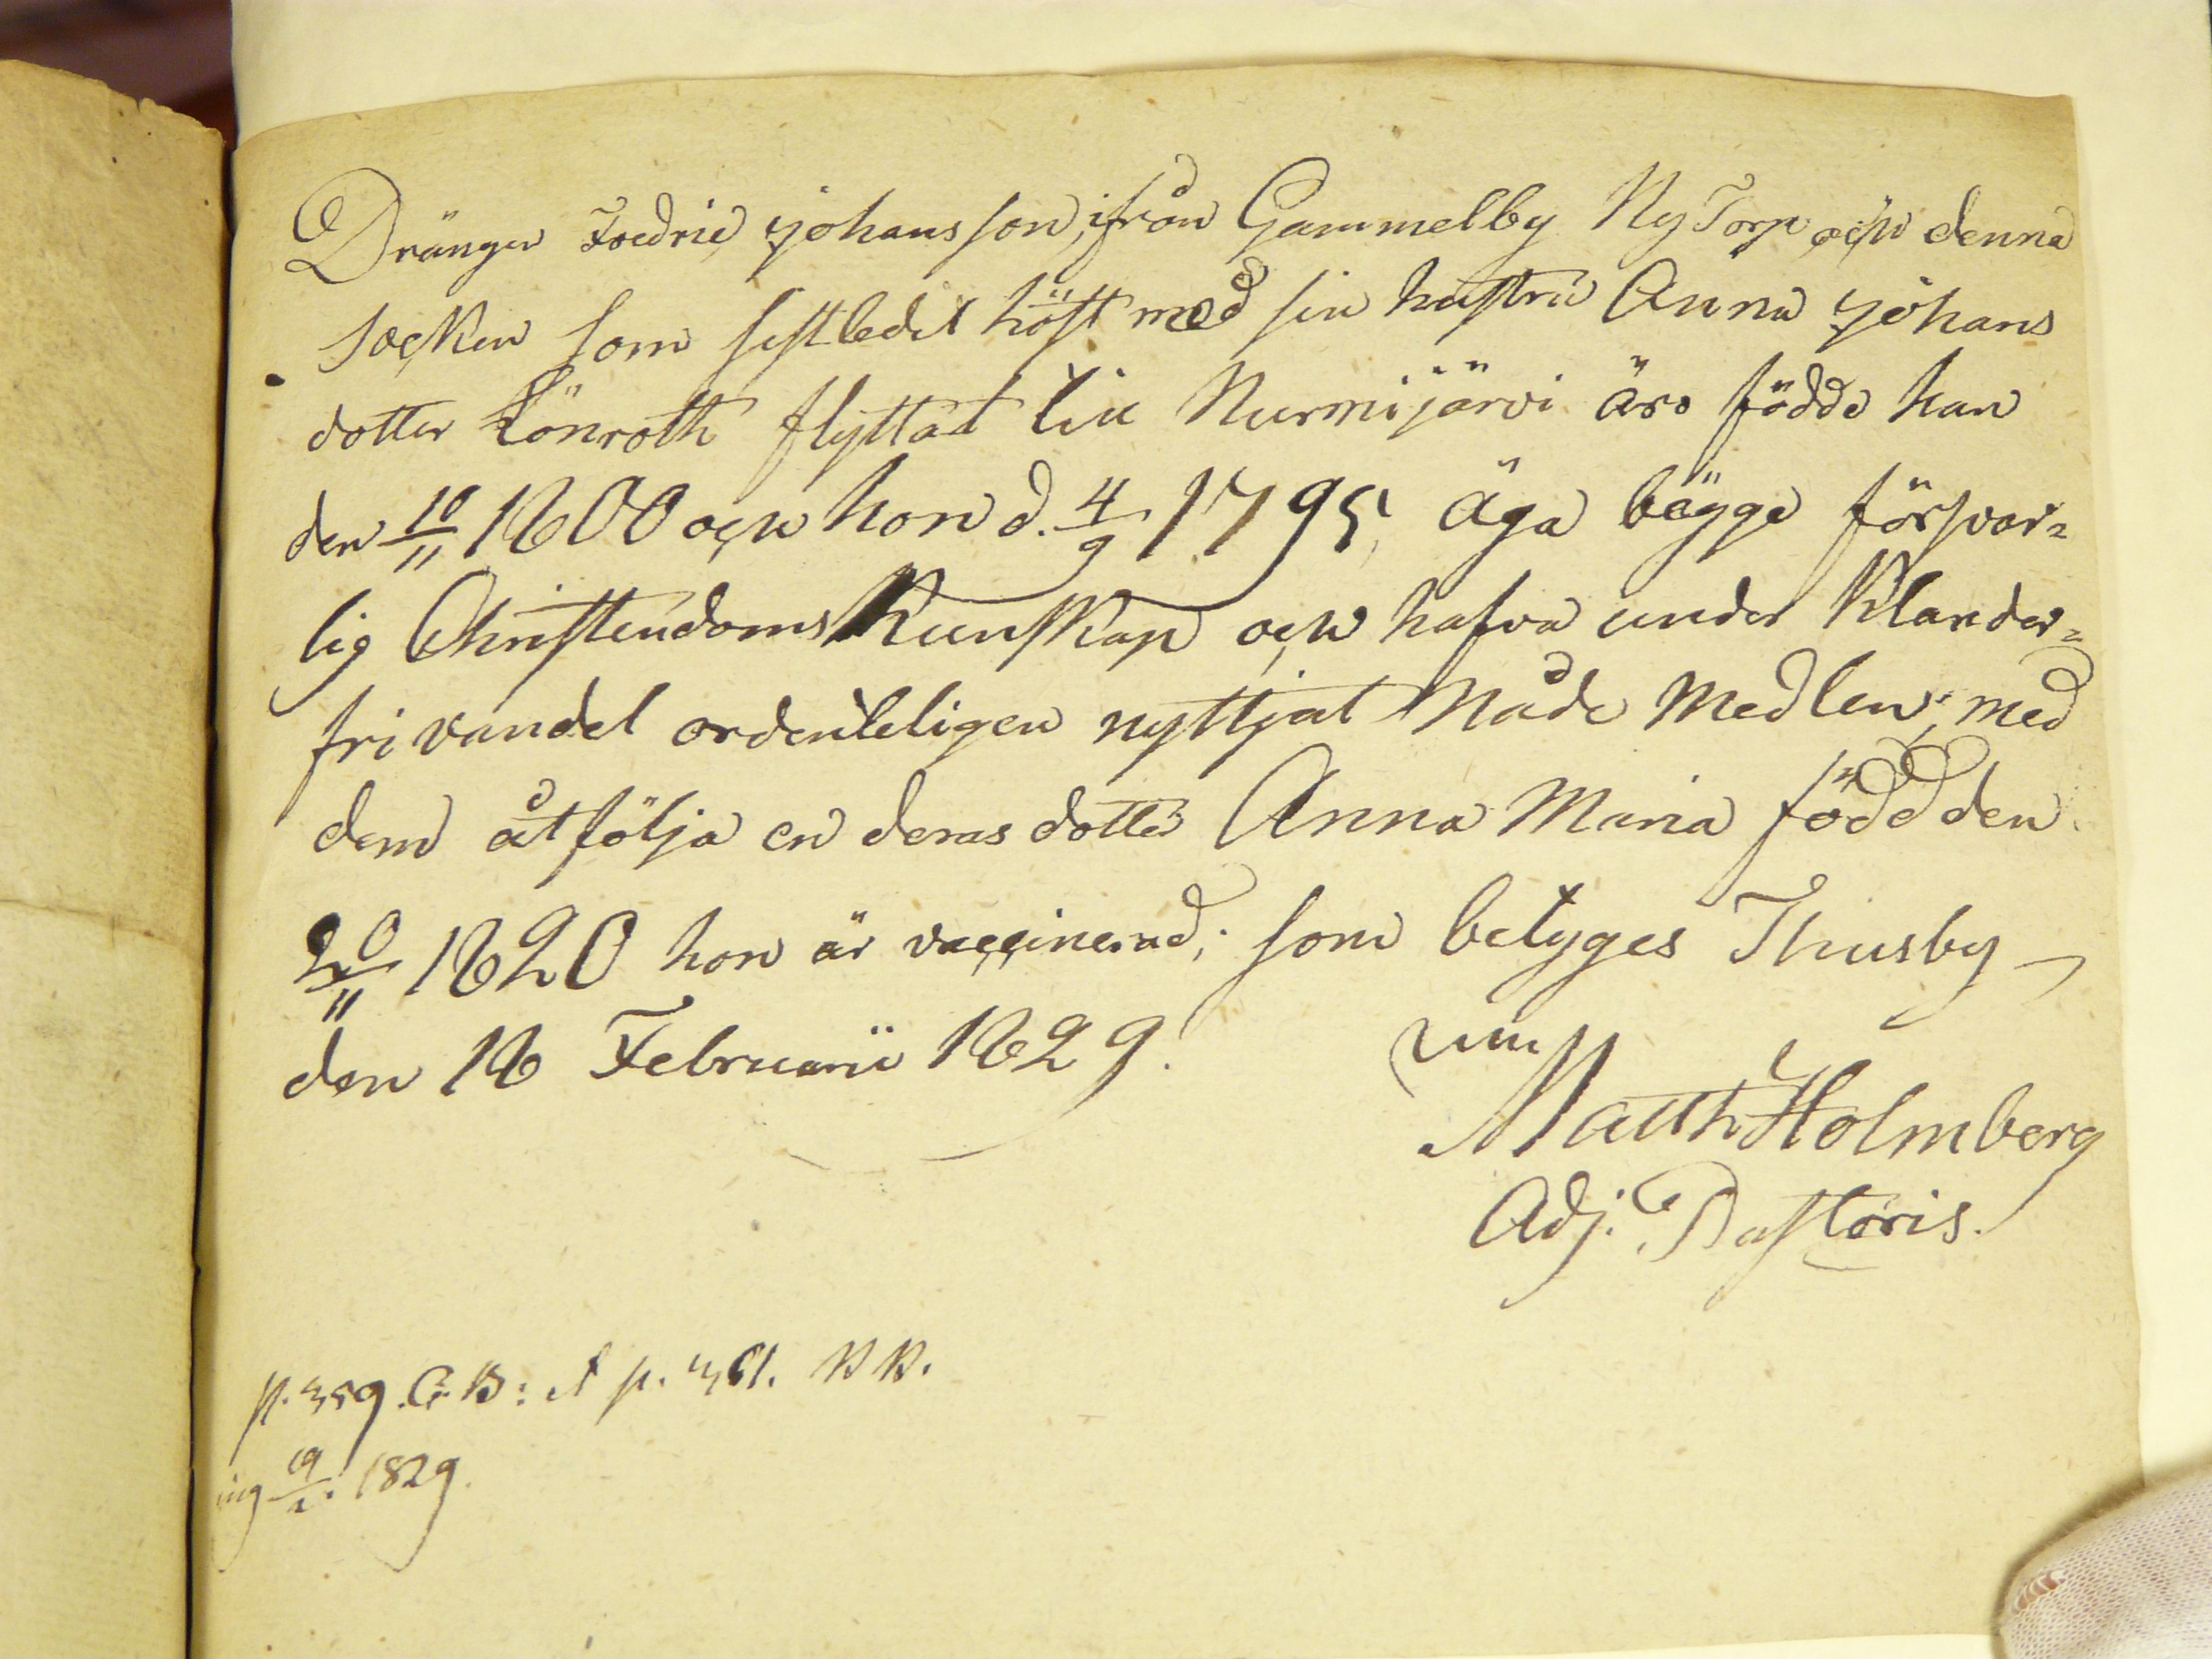 Drängen Fredric Johansson, ifrån Gammelby Ny Torp och denna
Socken som sistledit höst med sin hustru Anna Johans
dotter Lönroth flyttad till Nurmijärvi äro födde han
den 10/11 1800 och hon d. 4/9 1795, äga bägge försvar=
lig Christendoms Kunskap och hafva under Klander=
fri vandel ordenteligen nyttjat Nåde Medlen; med
dem åtfölja en deras dotter Anna Maria född den
20/11 1820 hon är vaccinerad; som betyges Thusby
den 18 Februarii 1829.
Matth Holmberg
Adj: Pastoris.
p. 359. C. B: p. 361.
1829.